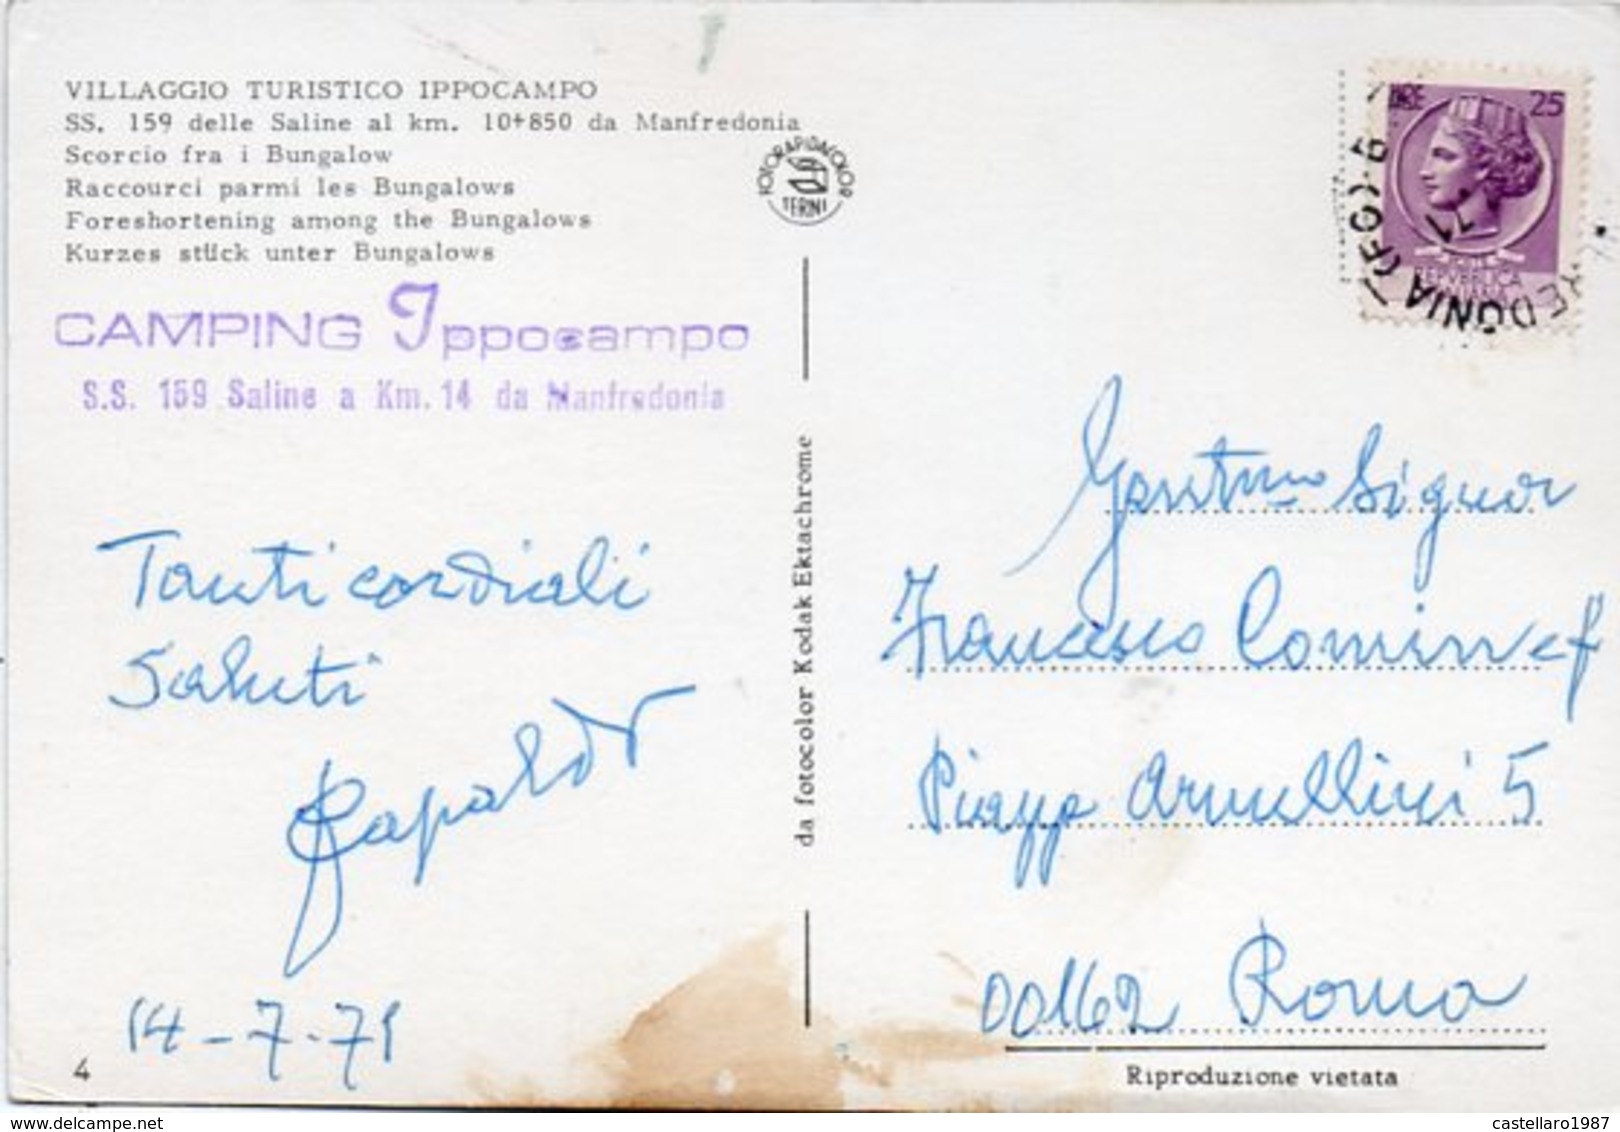 VILLAGGIO TURISTICO IPPOCAMPO
SS. 159 delle Saline al km. 10+850 da Manfredonia
Scorcio fra i Bungalow
Raccourci parmi les Bungalows
Foreshortening among the Bungalows
Kurzes stück unter Bungalows
CAMPING Ippocampo
S.S. 159 Saline a Km. 14 da Manfredonia
Tanti cordiali
Saluti
14-7-71
4
FOTORAPIDACOLOR
TERNI
da fotocolor Kodak Ektachrome
LIRE 25
Signor
Francesco
Piazza Armellini 5
00162 Roma
Riproduzione vietata
castellaro1987